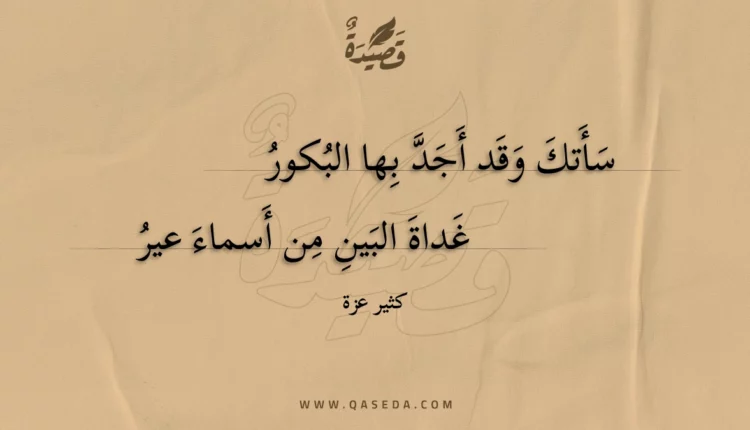 قَصِيْدَةٌ
سَأَتكَ وَقَد أَجَدَّ بِها البُكورُ
غَداةَ البَينِ مِن أَسماءَ عيرُ
كثير عزة
WWW.QASEDA.COM